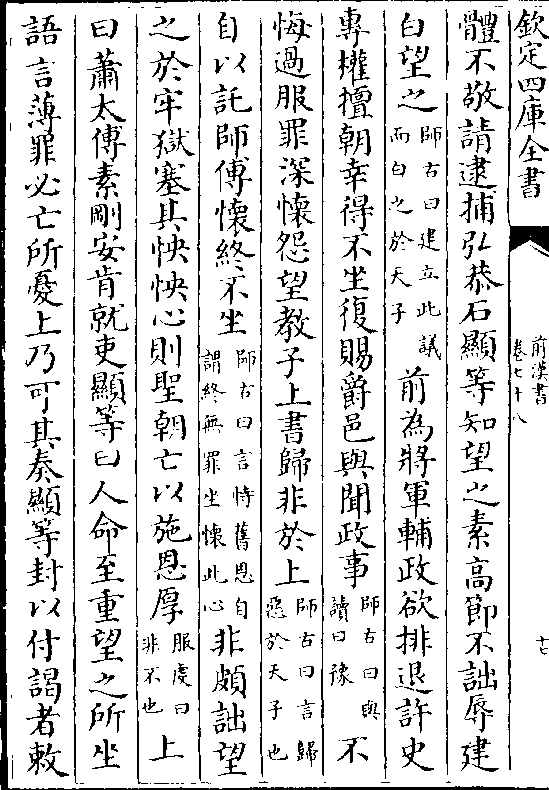 欽定四庫全書
前漢書
卷七十八
十
體不敬請逮捕弘恭石顯等知望之素高節不詘辱建
白望之師古曰建立此議而白之於天子前為將軍輔政欲排退許史
專權擅朝幸得不坐復賜爵邑與聞政事師古曰與讀曰豫不
悔過服罪深懷怨望教子上書歸非於上師古曰言歸惡於天子也
自以託師傅懷終不坐師古曰言恃舊恩自謂終無罪坐懷此心非頗詘望
之於牢獄塞其怏怏心則聖朝亡以施恩厚服虔曰非不也上
曰蕭太傅素剛安肯就吏顯等曰人命至重望之所坐
語言薄罪必亡所憂上乃可其奏顯等封以付謁者敕